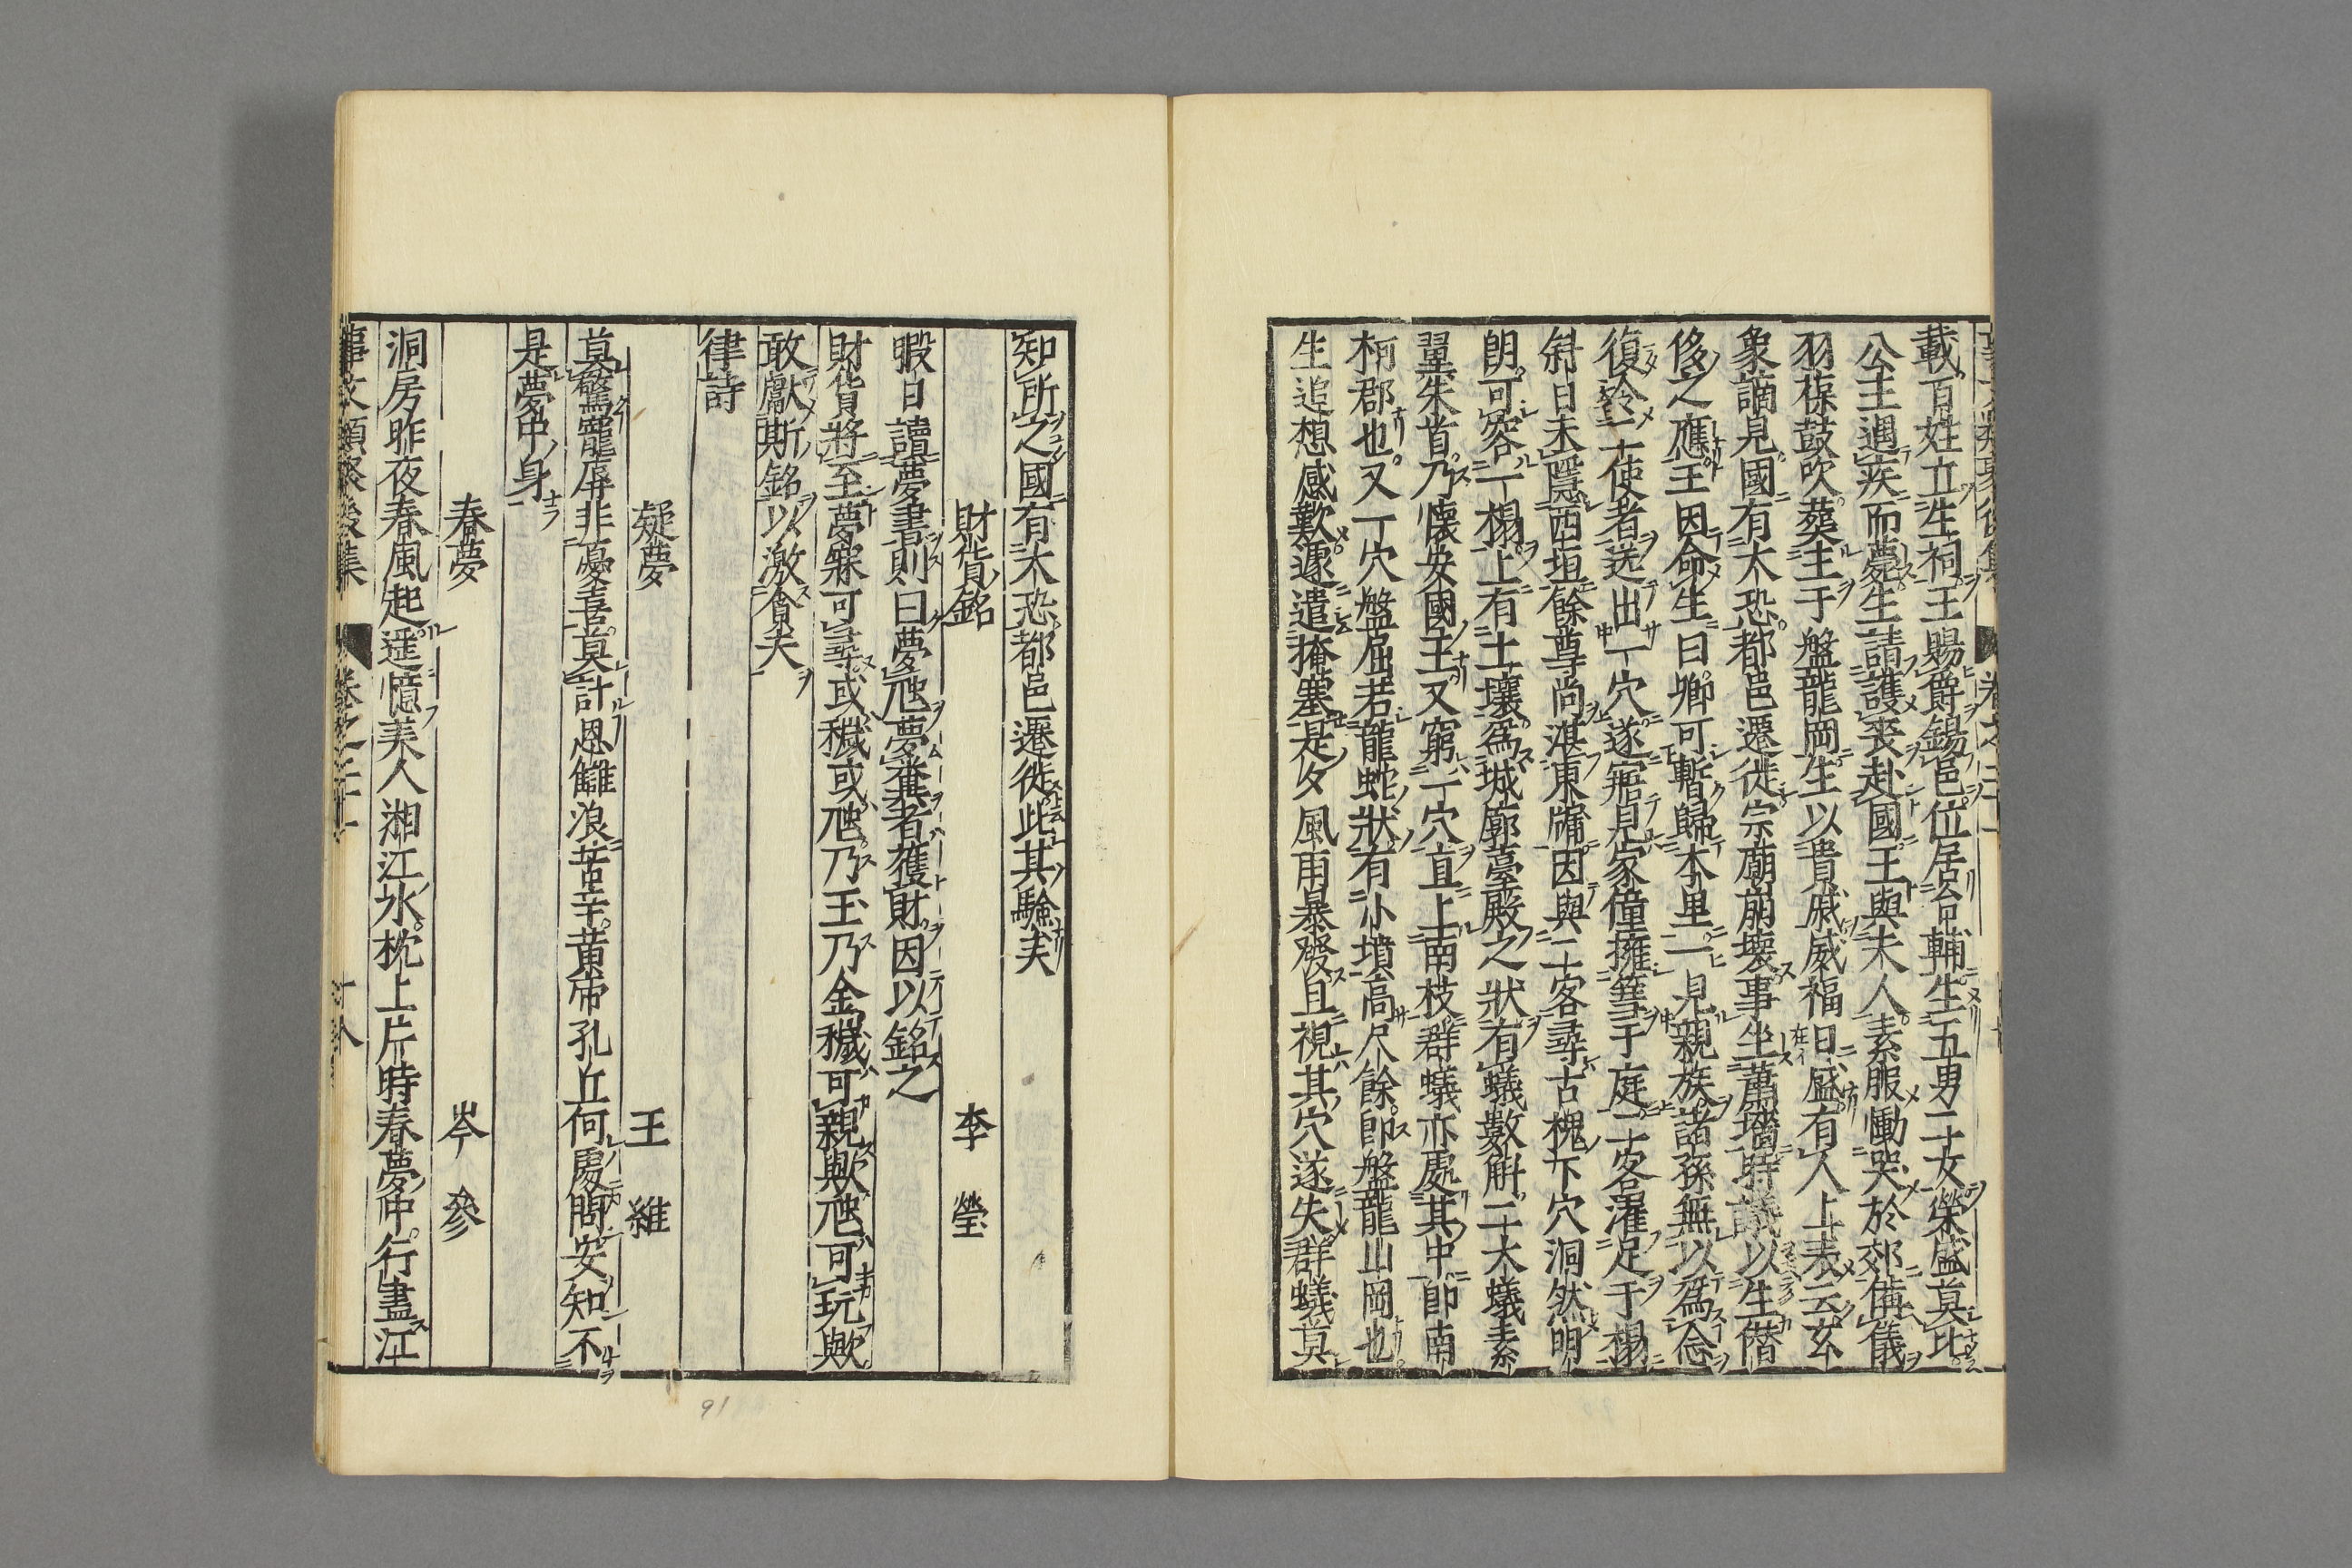 載百姓立生祠王賜爵錫邑位居台輔生五男二女榮盛莫比
公主遇疾而薨生請護喪赴國王與夫人素服慟哭於郊備儀
羽葆鼓吹葬主于盤龍岡生以貴戚威福日盛有人上表云玄
象謫見國有大恐都邑遷徙宗廟崩壞事坐蕭墻時議以生僣
侈之應王因命生曰卿可暫歸本里一見親族諸孫無以爲念
復令二使者送出一穴遂寤見家僮擁篲于庭二客濯足于榻
斜日未隱西垣餘尊尚湛東牖因與二客尋古槐下穴洞然明
朗可容一榻上有土壤爲城廓臺殿之狀有蟻數斛二大蟻素
翼朱首乃懷安國王又窮一穴直上南枝群蟻亦處其中卽南
柯郡也又一穴盤屈若龍蛇狀有小墳高尺餘卽盤龍山岡也
生追想感歎遽遣掩塞是夕風雨暴發且視其穴遂失群蟻莫
知所之國有大恐都邑遷徙此其驗矣
財貨銘 李瑩
暇日讀夢書則曰夢虵夢糞者獲財因以銘之
財貨將至夢寐可尋或穢或虵乃玉乃金穢可親歟虵可玩歟
敢獻斯銘以激貪夫
律詩
疑夢 王維
莫驚寵辱非憂喜莫計恩讎浪苦辛黃帝孔丘何處問安知不
是夢中身
春夢 岑參
洞房昨夜春風起遥憶美人湘江水枕上片時春夢中行盡江
事文類聚後集 卷之二十一 十八